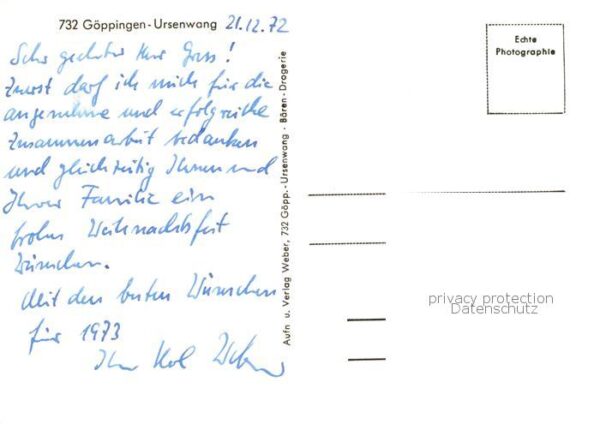 732 Göppingen - Ursenwang 21.12.72
Sehr geehrter Herr Gross!
Zuerst darf ich mich für die
angenehme und erfolgreiche
Zusammenarbeit bedanken
und gleichzeitig Ihnen und
Ihrer Familie ein
frohes Weihnachtsfest
wünschen.
Mit den besten Wünschen
für 1973
Ihr
Aufn u. Verlag Weber, 732 Göpp.-Ursenwang · Bären-Drogerie
Echte
Photographie
privacy protection
Datenschutz